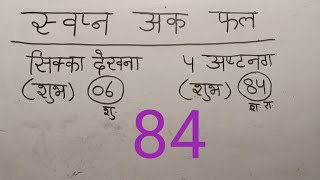 स्वप्न अंक फल
सिक्का देखना
(शुभ) 06
शु.
५ अष्टनग
(शुभ) 84
श. रा.
84